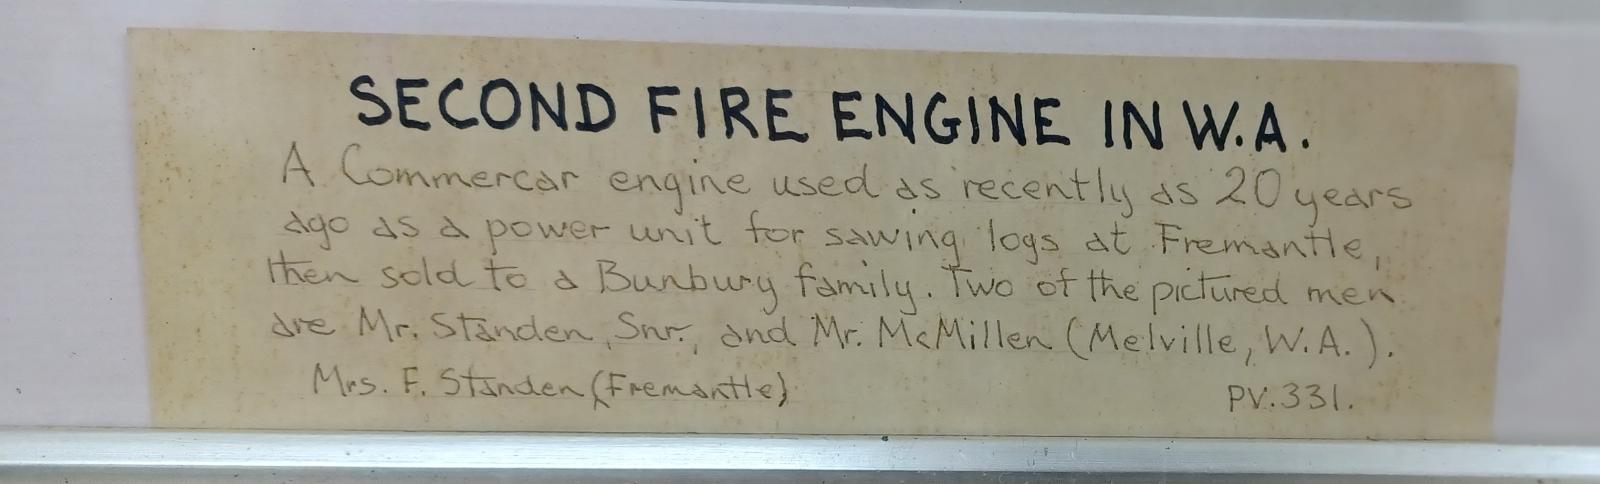 SECOND FIRE ENGINE IN W.A.
A Commercar engine used as recently as 20 years
ago as a power unit for sawing logs at Fremantle,
then sold to a Bunbury family. Two of the pictured men
are Mr. Standen, Snr., and Mr. McMillen (Melville, W.A.).
Mrs. F. Standen (Fremantle) PV.331.